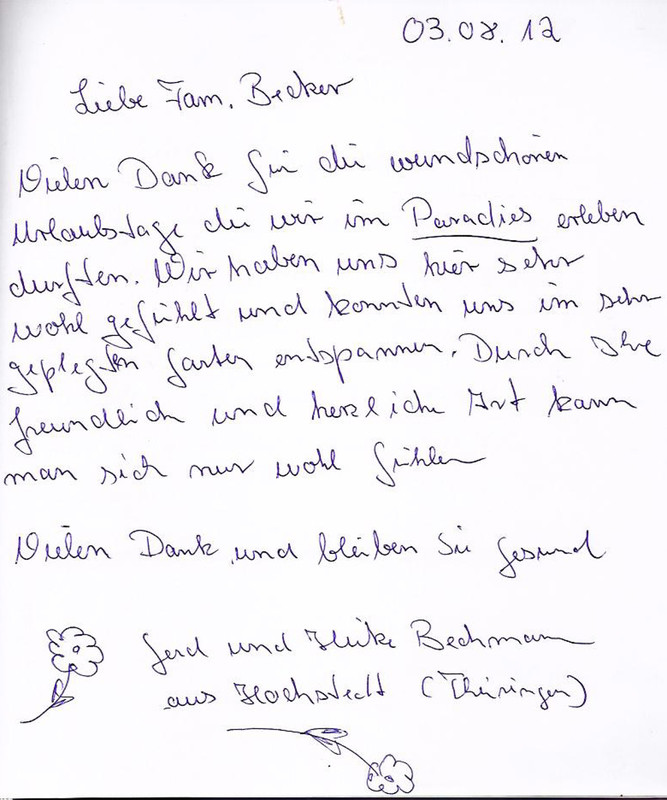 03.08.12
Liebe Fam. Becker
Vielen Dank für die wundschönen
Urlaubstage die wir im Paradies erleben
durften. Wir haben uns hier sehr
wohl gefühlt und konnten uns im sehr
geplegten Garten entspannen. Durch Ihre
freundlich und herzliche Art kann
man sich nur wohl fühlen
Vielen Dank und bleiben Sie gesund
Gerd und Heike Bechmann
aus Hochstedt (Thüringen)